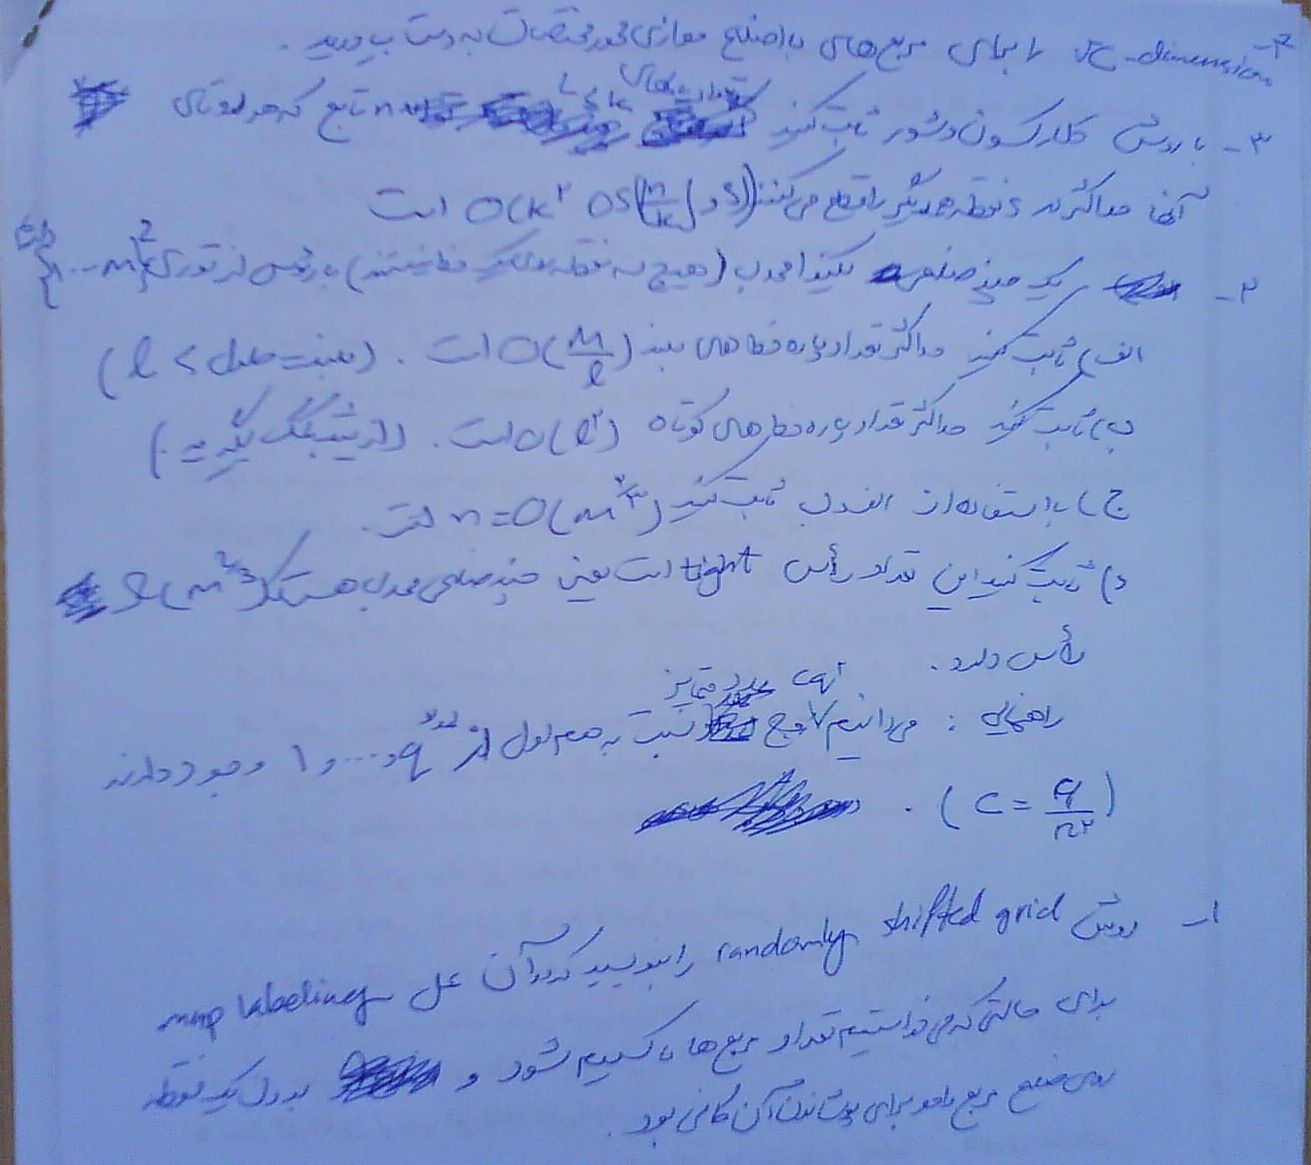 ۴- VC-dimension را برای مربع‌های با اضلاع موازی محور مختصات به دست بیاورید.
۳- با روش کلارکسون و شور ثابت کنید تعداد سطح‌های ≤k n تابع که هر دوتای
آنها حداکثر در s نقطه همدیگر را قطع می‌کنند O(k² DS(n/k, s)) است
۲- یک چندضلعی محدب (هیچ سه نقطه روی یک خط نیستند) با رئوس از توری {1...m}²
الف) ثابت کنید حداکثر تعداد پاره خط‌های بلند O(m/l) است. (بلند = طول > l)
ب) ثابت کنید حداکثر تعداد پاره خط‌های کوتاه O(l²) است. (از شیب کمک بگیرید)
ج) با استفاده از الف و ب ثابت کنید n = O(m^2/3) است.
د) ثابت کنید این تعداد رأس tight است یعنی چندضلعی محدب هست که Ω(m^2/3)
رأس دارد.
راهنمایی: می‌دانیم cq² زوج عدد متمایز نسبت به هم اول از 1 و ... و q وجود دارند
(c = 6/π²).
۱- روش randomly shifted grid را بنویسید که در آن map labeling
برای حالتی که می‌خواستیم تعداد مربع‌ها ماکسیمم شود و بدون یک نقطه
روی ضلع مربع بود برای پوشاندن آن کافی بود.